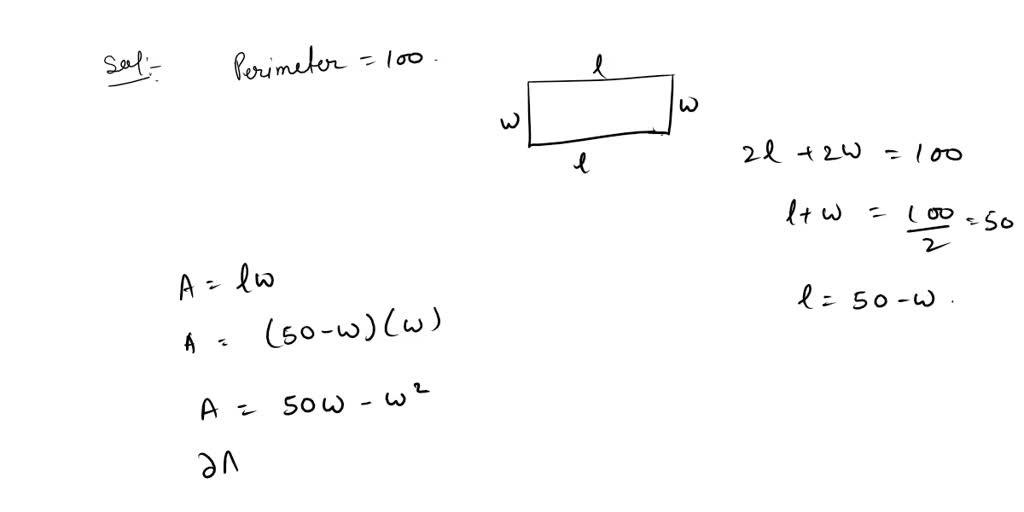 Sol:- Perimeter = 100.
l
w w
l
2l + 2w = 100
l + w = 100/2 = 50
l = 50 - w.
A = lw
A = (50-w)(w)
A = 50w - w²
∂A